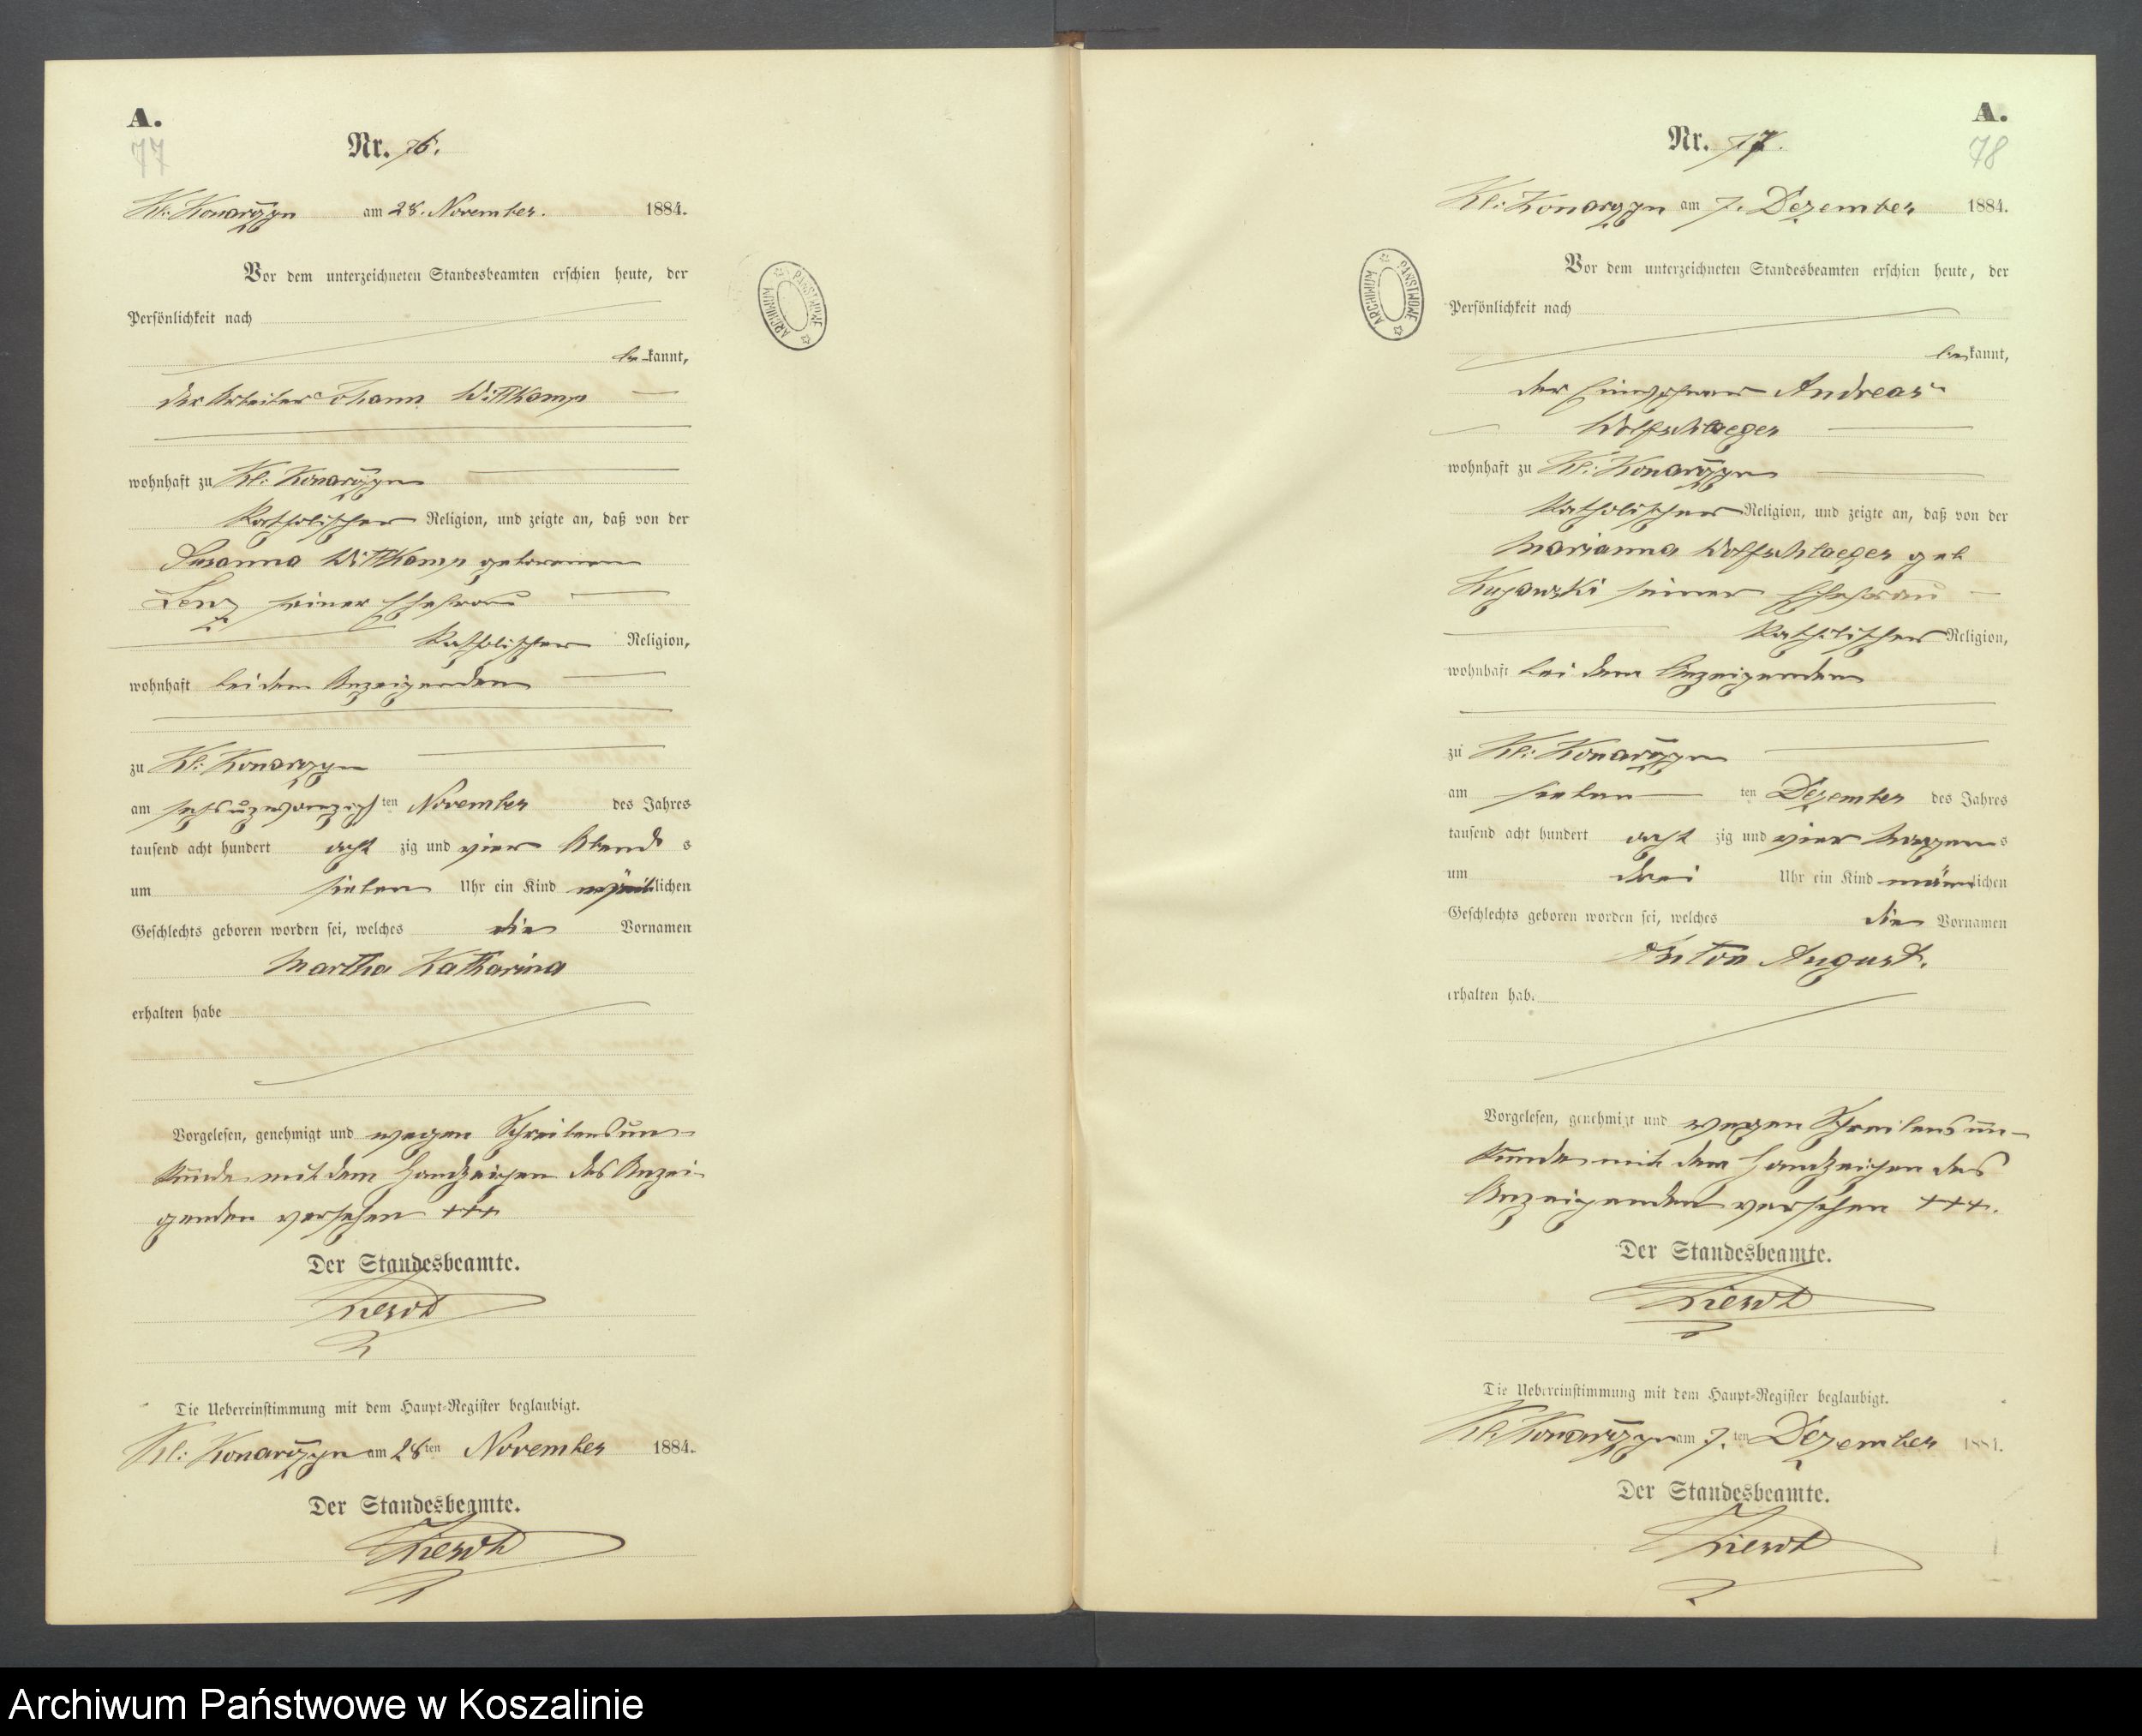 A.
77
Nr. 76.
Kl: Konarczyn am 28. November. 1884.
Vor dem unterzeichneten Standesbeamten erschien heute, der
Persönlichkeit nach
be kannt,
der Arbeiter Johann Wittkamp
wohnhaft zu Kl: Konarczyn
katholischer Religion, und zeigte an, daß von der
Susanna Wittkamp geborenen
Lenz seiner Ehefrau
katholischer Religion,
wohnhaft bei dem Anzeigenden
zu Kl: Konarczyn
am sechsuzwanzigsten November des Jahres
tausend acht hundert acht zig und vier Abends
um sieben Uhr ein Kind weiblichen
Geschlechts geboren worden sei, welches die Vornamen
Martha Katharina
erhalten habe
Vorgelesen, genehmigt und wegen Schreibensun-
kunde mit dem Handzeichen des Anzei-
genden versehen +++
Der Standesbeamte.
Die Uebereinstimmung mit dem Haupt-Register beglaubigt.
Kl: Konarczyn am 28ten November 1884.
Der Standesbeamte.
ARCHIWUM PAŃSTWOWE
A.
78
Nr. 77.
Kl: Konarczyn am 7. Dezember 1884.
Vor dem unterzeichneten Standesbeamten erschien heute, der
Persönlichkeit nach
be kannt,
der Einwohner Andreas
Wolfschlaeger
wohnhaft zu Kl: Konarczyn
katholischer Religion, und zeigte an, daß von der
Marianna Wolfschlaeger geb
Kujawski seiner Ehefrau
katholischer Religion,
wohnhaft bei dem Anzeigenden
zu Kl: Konarczyn
am sieben ten Dezember des Jahres
tausend acht hundert acht zig und vier Morgens
um drei Uhr ein Kind männlichen
Geschlechts geboren worden sei, welches die Vornamen
Anton August.
erhalten habe
Vorgelesen, genehmigt und wegen Schreibensun-
kunde mit dem Handzeichen des
Anzeigenden versehen +++.
Der Standesbeamte.
Die Uebereinstimmung mit dem Haupt-Register beglaubigt.
Kl: Konarczyn am 7. ten Dezember 1884.
Der Standesbeamte.
ARCHIWUM PAŃSTWOWE
Archiwum Państwowe w Koszalinie